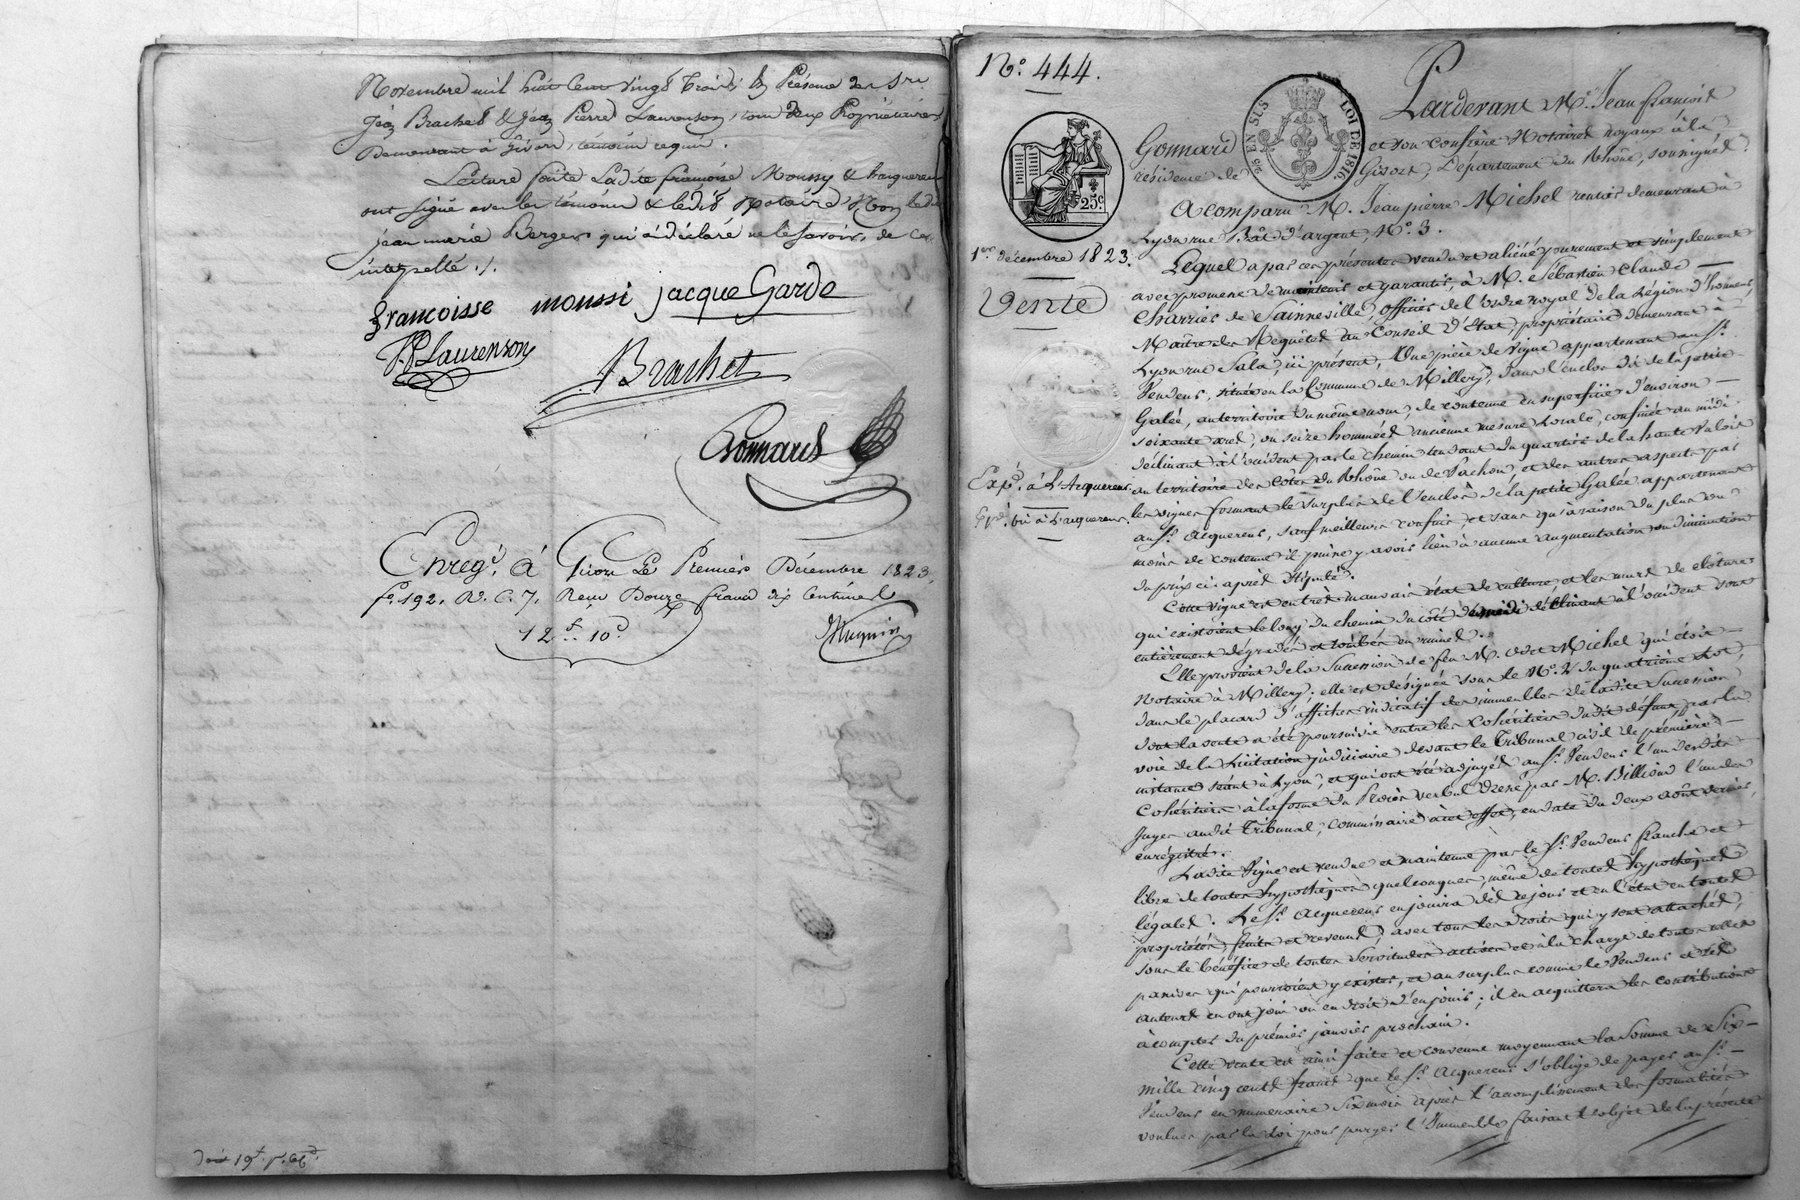 Novembre mil huit cent vingt trois En Présence des Srs
Jean Brachet & Jean Pierre Laurenson, tous deux Propriétaires
Demeurant à Givors, témoins requis.
Lecture faite Ladite françoise Moussy & l'acquereur
ont signé avec les témoins & ledit Notaire Non ledit
jean marie Berger qui a déclaré ne le savoir, de ce
interpellé ./.
francoisse moussi jacque Garde
JP Laurenson
Brachet
Gonnard
Enregt. à Givors Le Premier Décembre 1823.
fo. 192. R. C. 7. Reçu Douze francs dix Centimes
12 f. 10 c
No. 444.
25 EN SUS LOI DE 1816.
25c
1er. décembre 1823.
Vente
Exp. à L'Acquereur.
à l'acquereur.
Pardevant Me. Jean françois
Gonnard et son confrère Notaires royaux à la
résidence de Givors, Département du Rhône, soussignés.
A comparu M. Jean pierre Michel rentier demeurant à
Lyon rue Plat d'argent, No. 3.
Lequel a par ces présentes vendu et aliéné purement et simplement
avec promesse de maintenir et garantir, à M. Sébastien Claude
Charrier de Sainneville, officier de l'ordre royal de la Légion d'honneur,
Maître des Requêtes au Conseil d'Etat, propriétaire demeurant à
Lyon rue Sala, ici présent, Une pièce de vigne appartenant au Sr.
Vendeur, située en la Commune de Millery, dans l'enclos dit de la petite
Galée, au territoire du même nom, de contenue en superficie d'environ
soixante ares, ou seize hommées ancienne mesure locale, confinée au midi
déclinant à l'occident par le chemin tendant du quartier de la haute Valois
au territoire des Côtes du Rhône ou de Pachon, et des autres aspects par
les vignes formant le surplus de l'enclos de la petite Galée appartenant
au Sr. Acquereur, sauf meilleurs confins, et sans qu'à raison du plus ou
moins de contenue il puisse y avoir lieu à aucune augmentation ou diminution
du prix ci-après stipulé.
Cette vigne est en très mauvais état de culture et les murs de clôture
qui existoient le long du chemin du côté du midi déclinant à l'occident sont
entièrement dégradés et tombés en ruines.
Elle provient de la Succession de feu M. Odet Michel qui étoit
Notaire à Millery: elle est désignée sous le No. 2 du quatrième Lot,
dans le placard d'affiches indicatif des immeubles de ladite Succession
dont la vente a été poursuivie entre les Cohéritiers dudit défunt, par la
voie de la Licitation judiciaire devant le Tribunal civil de première
instance séant à Lyon, et qui ont été adjugés au Sr. Vendeur l'un desdits
Cohéritiers à la forme du Procès verbal dressé par M. Billion l'un des
Juges audit Tribunal, Commissaire à cet effet, en date du deux août dernier,
enrégistré.
Ladite Vigne est vendue et maintenue par le Sr. Vendeur franche et
libre de toutes hypothèques quelconques, même de toutes hypothèques
légales. Le Sr. Acquereur en jouira dès ce jour et en l'état en toutes
propriétés, fruits et revenus, avec tous les droits qui y sont attachés,
sous le bénéfice de toutes Servitudes actives et à la charge de toutes celles
passives qui pourroient y exister, et au surplus comme le Vendeur et ses
auteurs en ont joui ou eu droit d'en jouir; il en acquittera les contributions
à compter du premier janvier prochain.
Cette vente est ainsi faite et convenue moyennant la Somme de Six
mille cinq cents francs que le Sr. Acquereur s'oblige de payer au Sr.
Vendeur en numéraire Six mois après l'accomplissement des formalités
voulues par la Loi pour purger l'Immeuble faisant l'objet de la présente